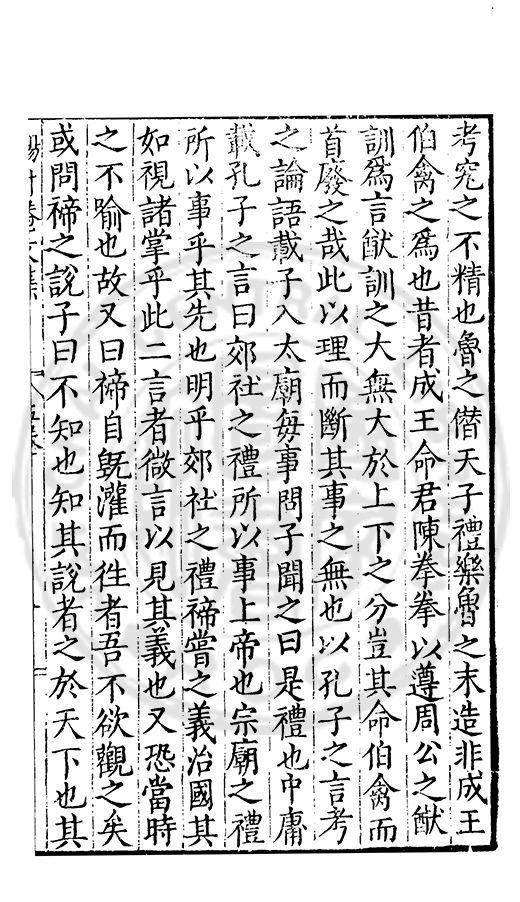 考究之不精也魯之僭天子禮樂魯之末造非成王
伯禽之爲也昔者成王命君陳拳拳以遵周公之猷
訓爲言猷訓之大無大於上下之分豈其命伯禽而
首廢之哉此以理而斷其事之無也以孔子之言考
之論語載子入太廟每事問子聞之曰是禮也中庸
載孔子之言曰郊社之禮所以事上帝也宗廟之禮
所以事乎其先也明乎郊社之禮禘嘗之義治國其
如視諸掌乎此二言者微言以見其義也又恐當時
之不喻也故又曰禘自旣灌而徃者吾不欲觀之矣
或問禘之說子曰不知也知其說者之於天下也其